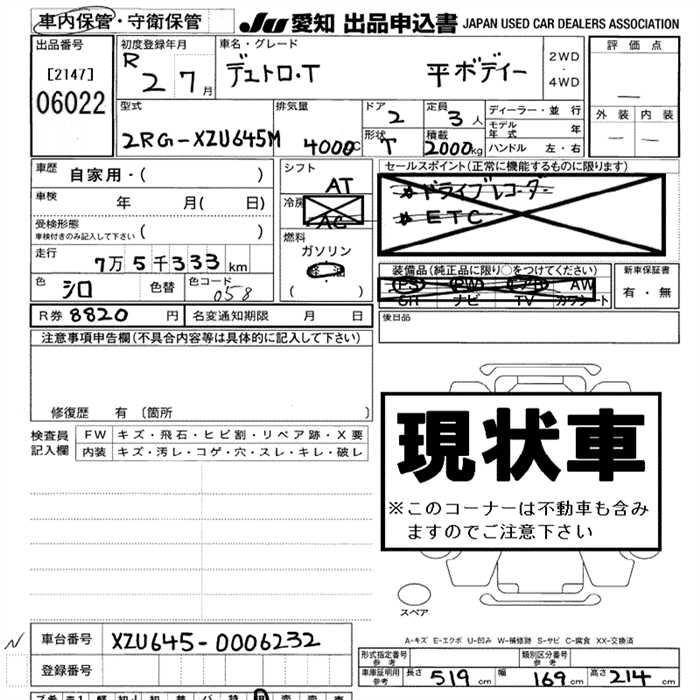 車内保管・守衛保管 JU 愛知 出品申込書 JAPAN USED CAR DEALERS ASSOCIATION
出品番号 初度登録年月 車名・グレード 2WD ・ 4WD 評価点
[2147] R 2 7月 デュトロ・T 平ボディー
06022
外装 内装
型式 排気量 ドア 2 定員 3人 ディーラー・並行
モデル年式 年
2RG-XZU645M 4000C 形状 T 積載 2000kg ハンドル 左・右
車歴 自家用・( ) シフト AT セールスポイント(正常に機能するものに限ります)
車検 年 月( 日) 冷房 AC ドライブレコーダー
ETC
受検形態 車検付きのみ記入して下さい ( ) 燃料 ガソリン
走行 7万5千333km 装備品(純正品に限り○をつけてください) 新車保証書
色 シロ 色替 色コード 058 ( ) PS PW エアB AW 有・無
SR ナビ TV カワシート
R券 8820円 名変通知期限 月 日 後日品
注意事項申告欄(不具合内容等は具体的に記入して下さい)
修復歴 有 〔箇所 〕
検査員記入欄 FW キズ・飛石・ヒビ割・リペア跡・X要
内装 キズ・汚レ・コゲ・穴・スレ・キレ・破レ
現状車
※このコーナーは不動車も含み
ますのでご注意下さい
スペア
A-キズ E-エクボ U-凹み W-補修跡 S-サビ C-腐食 XX-交換済
車台番号 XZU645-0006232
登録番号
形式指定番号 参考 類別区分番号 参考
車庫証明用 参考 長さ 519cm 幅 169cm 高さ 214cm